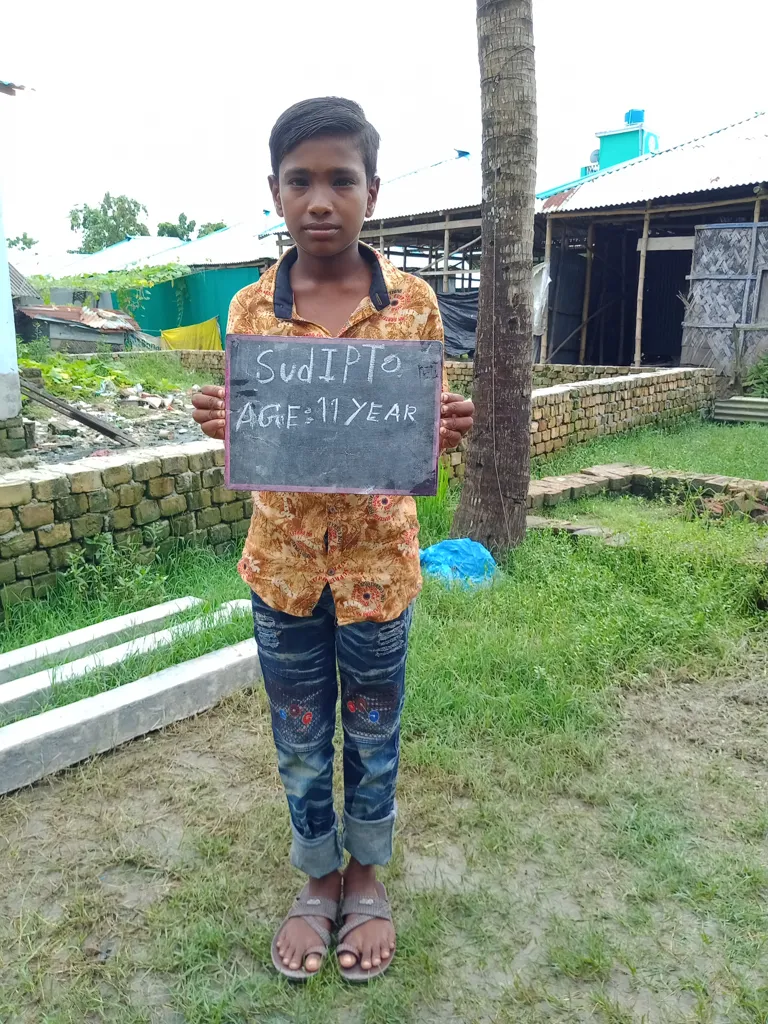 SudIPTo
AGE:11 YEAR